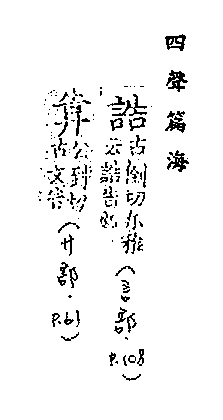 四聲篇海
誥古倒切尔雅云誥告也(言部．P.108)
公到切古文(廾部．P.61)